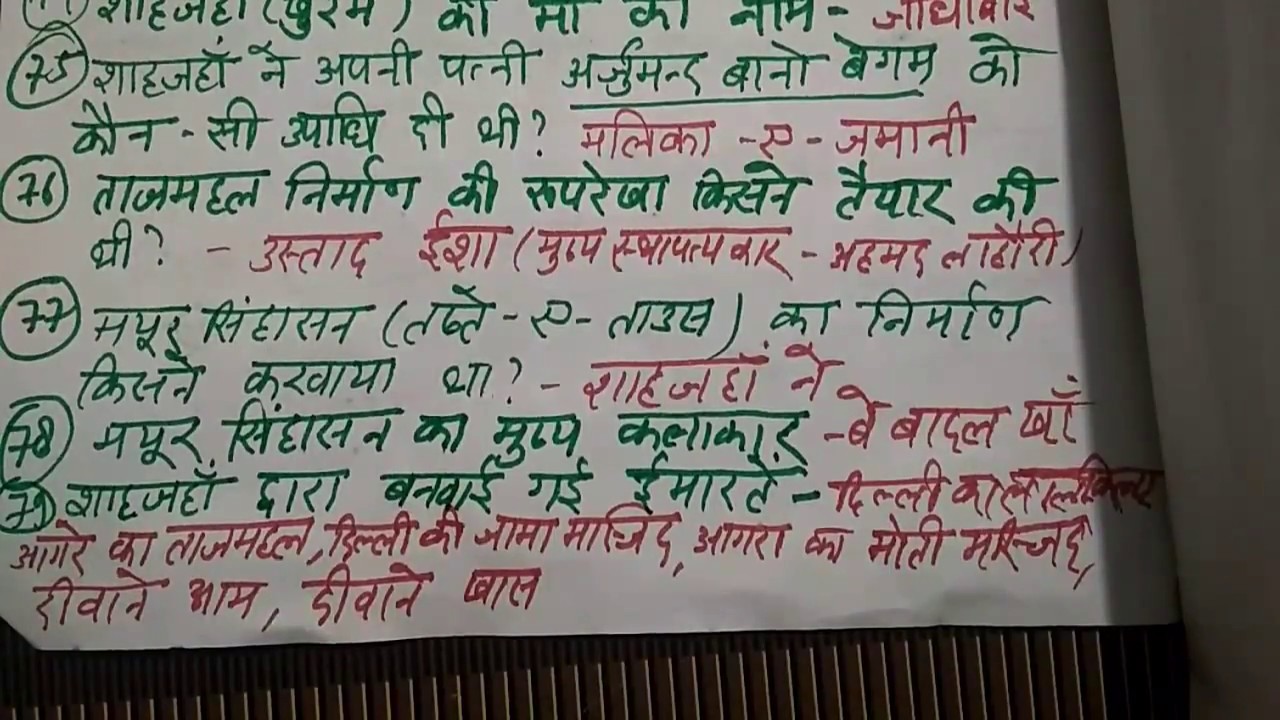 शाहजहाँ (खुर्रम) की माँ का नाम - जोधाबाई
75 शाहजहाँ ने अपनी पत्नी अर्जुमन्द बानो बेगम को
कौन - सी उपाधि दी थी? मलिका - ए - जमानी
76 ताजमहल निर्माण की रूपरेखा किसने तैयार की
थी? - उस्ताद ईशा (मुख्य स्थापत्यकार - अहमद लाहौरी)
77 मयूर सिंहासन (तख्ते - ए - ताउस) का निर्माण
किसने करवाया था? - शाहजहाँ ने
78 मयूर सिंहासन का मुख्य कलाकार - बे बादल खाँ
79 शाहजहाँ द्वारा बनवाई गई ईमारतें - दिल्ली का लालकिला
आगरे का ताजमहल, दिल्ली की जामा मस्जिद, आगरा का मोती मस्जिद,
दीवाने आम, दीवाने खास